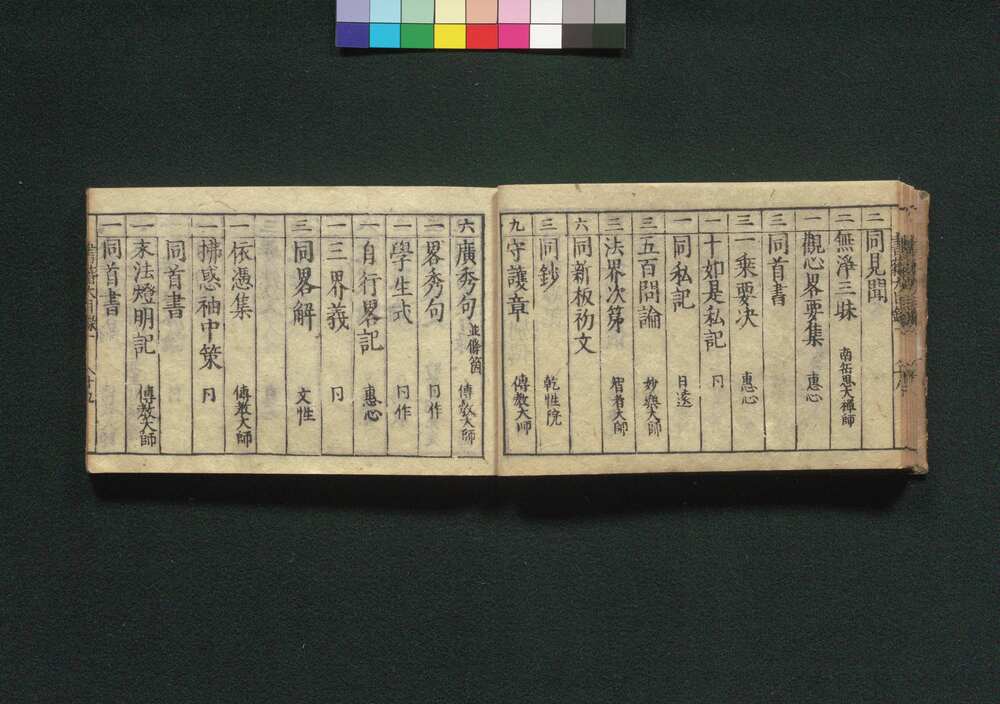 二 同見聞
二 無淨三昧 南岳思大禅師
一 觀心畧要集 惠心
三 同首書
三 一乗要决 惠心
一 十如是私記 冂
一 同私記 日遠
三 五百問論 妙樂大師
三 法界次第 智者大師
六 同新板初文
三 同鈔 乾性院
九 守護章 傳教大師
六 廣秀句 並脩箇 傳教大師
二 畧秀句 冂作
一 學生式 冂作
一 自行畧記 惠心
一 三界義 冂
三 同畧解 文性
一 依憑集 傳教大師
一 拂惑袖中策 冂
同首書
一 末法燈明記 傳教大師
一 同首書